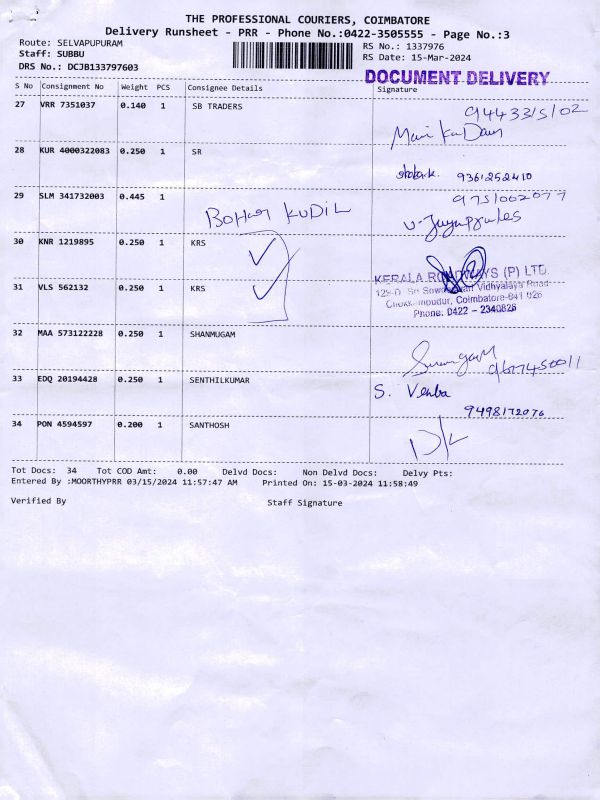 THE PROFESSIONAL COURIERS, COIMBATORE
Delivery Runsheet - PRR - Phone No.:0422-3505555 - Page No.:3
Route: SELVAPUPURAM
RS No.: 1337976
Staff: SUBBU
RS Date: 15-Mar-2024
DRS No.: DCJB133797603
DOCUMENT DELIVERY
S No Consignment No Weight PCS Consignee Details Signature
27 VRR 7351037 0.140 1 SB TRADERS
28 KUR 4000322083 0.250 1 SR
9361252410
29 SLM 341732003 0.445 1
KUDIL
30 KNR 1219895 0.250 1 KRS
KERALA ROADWAYS (P) LTD.
31 VLS 562132 0.250 1 KRS
Coimbatore-641 026
Phone: 0422 - 2340826
32 MAA 573122228 0.250 1 SHANMUGAM
33 EDQ 20194428 0.250 1 SENTHILKUMAR
S. Venba
9498172076
34 PON 4594597 0.200 1 SANTHOSH
Tot Docs: 34 Tot COD Amt: 0.00 Delvd Docs: Non Delvd Docs: Delvy Pts:
Entered By :MOORTHYPRR 03/15/2024 11:57:47 AM Printed On: 15-03-2024 11:58:49
Verified By Staff Signature